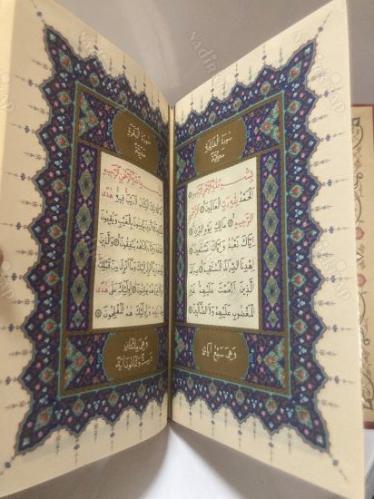 سورة الفاتحة
مكية
بسم الله الرحمن الرحيم
الحمد لله رب العالمين الرحمن
الرحيم مالك يوم الدين
إياك نعبد وإياك نستعين
اهدنا الصراط المستقيم صراط
الذين أنعمت عليهم غير
المغضوب عليهم ولا الضالين
وهي سبع آيات
سورة البقرة
بسم الله الرحمن الرحيم
الم ذلك الكتاب لا ريب فيه هدى
للمتقين الذين يؤمنون بالغيب ويقيمون
الصلوة ومما رزقناهم ينفقون والذين
يؤمنون بما أنزل إليك وما أنزل من قبلك
وبالآخرة هم يوقنون أولئك على هدى
من ربهم وأولئك هم المفلحون
وهي مائتان
وست وثمانون آية